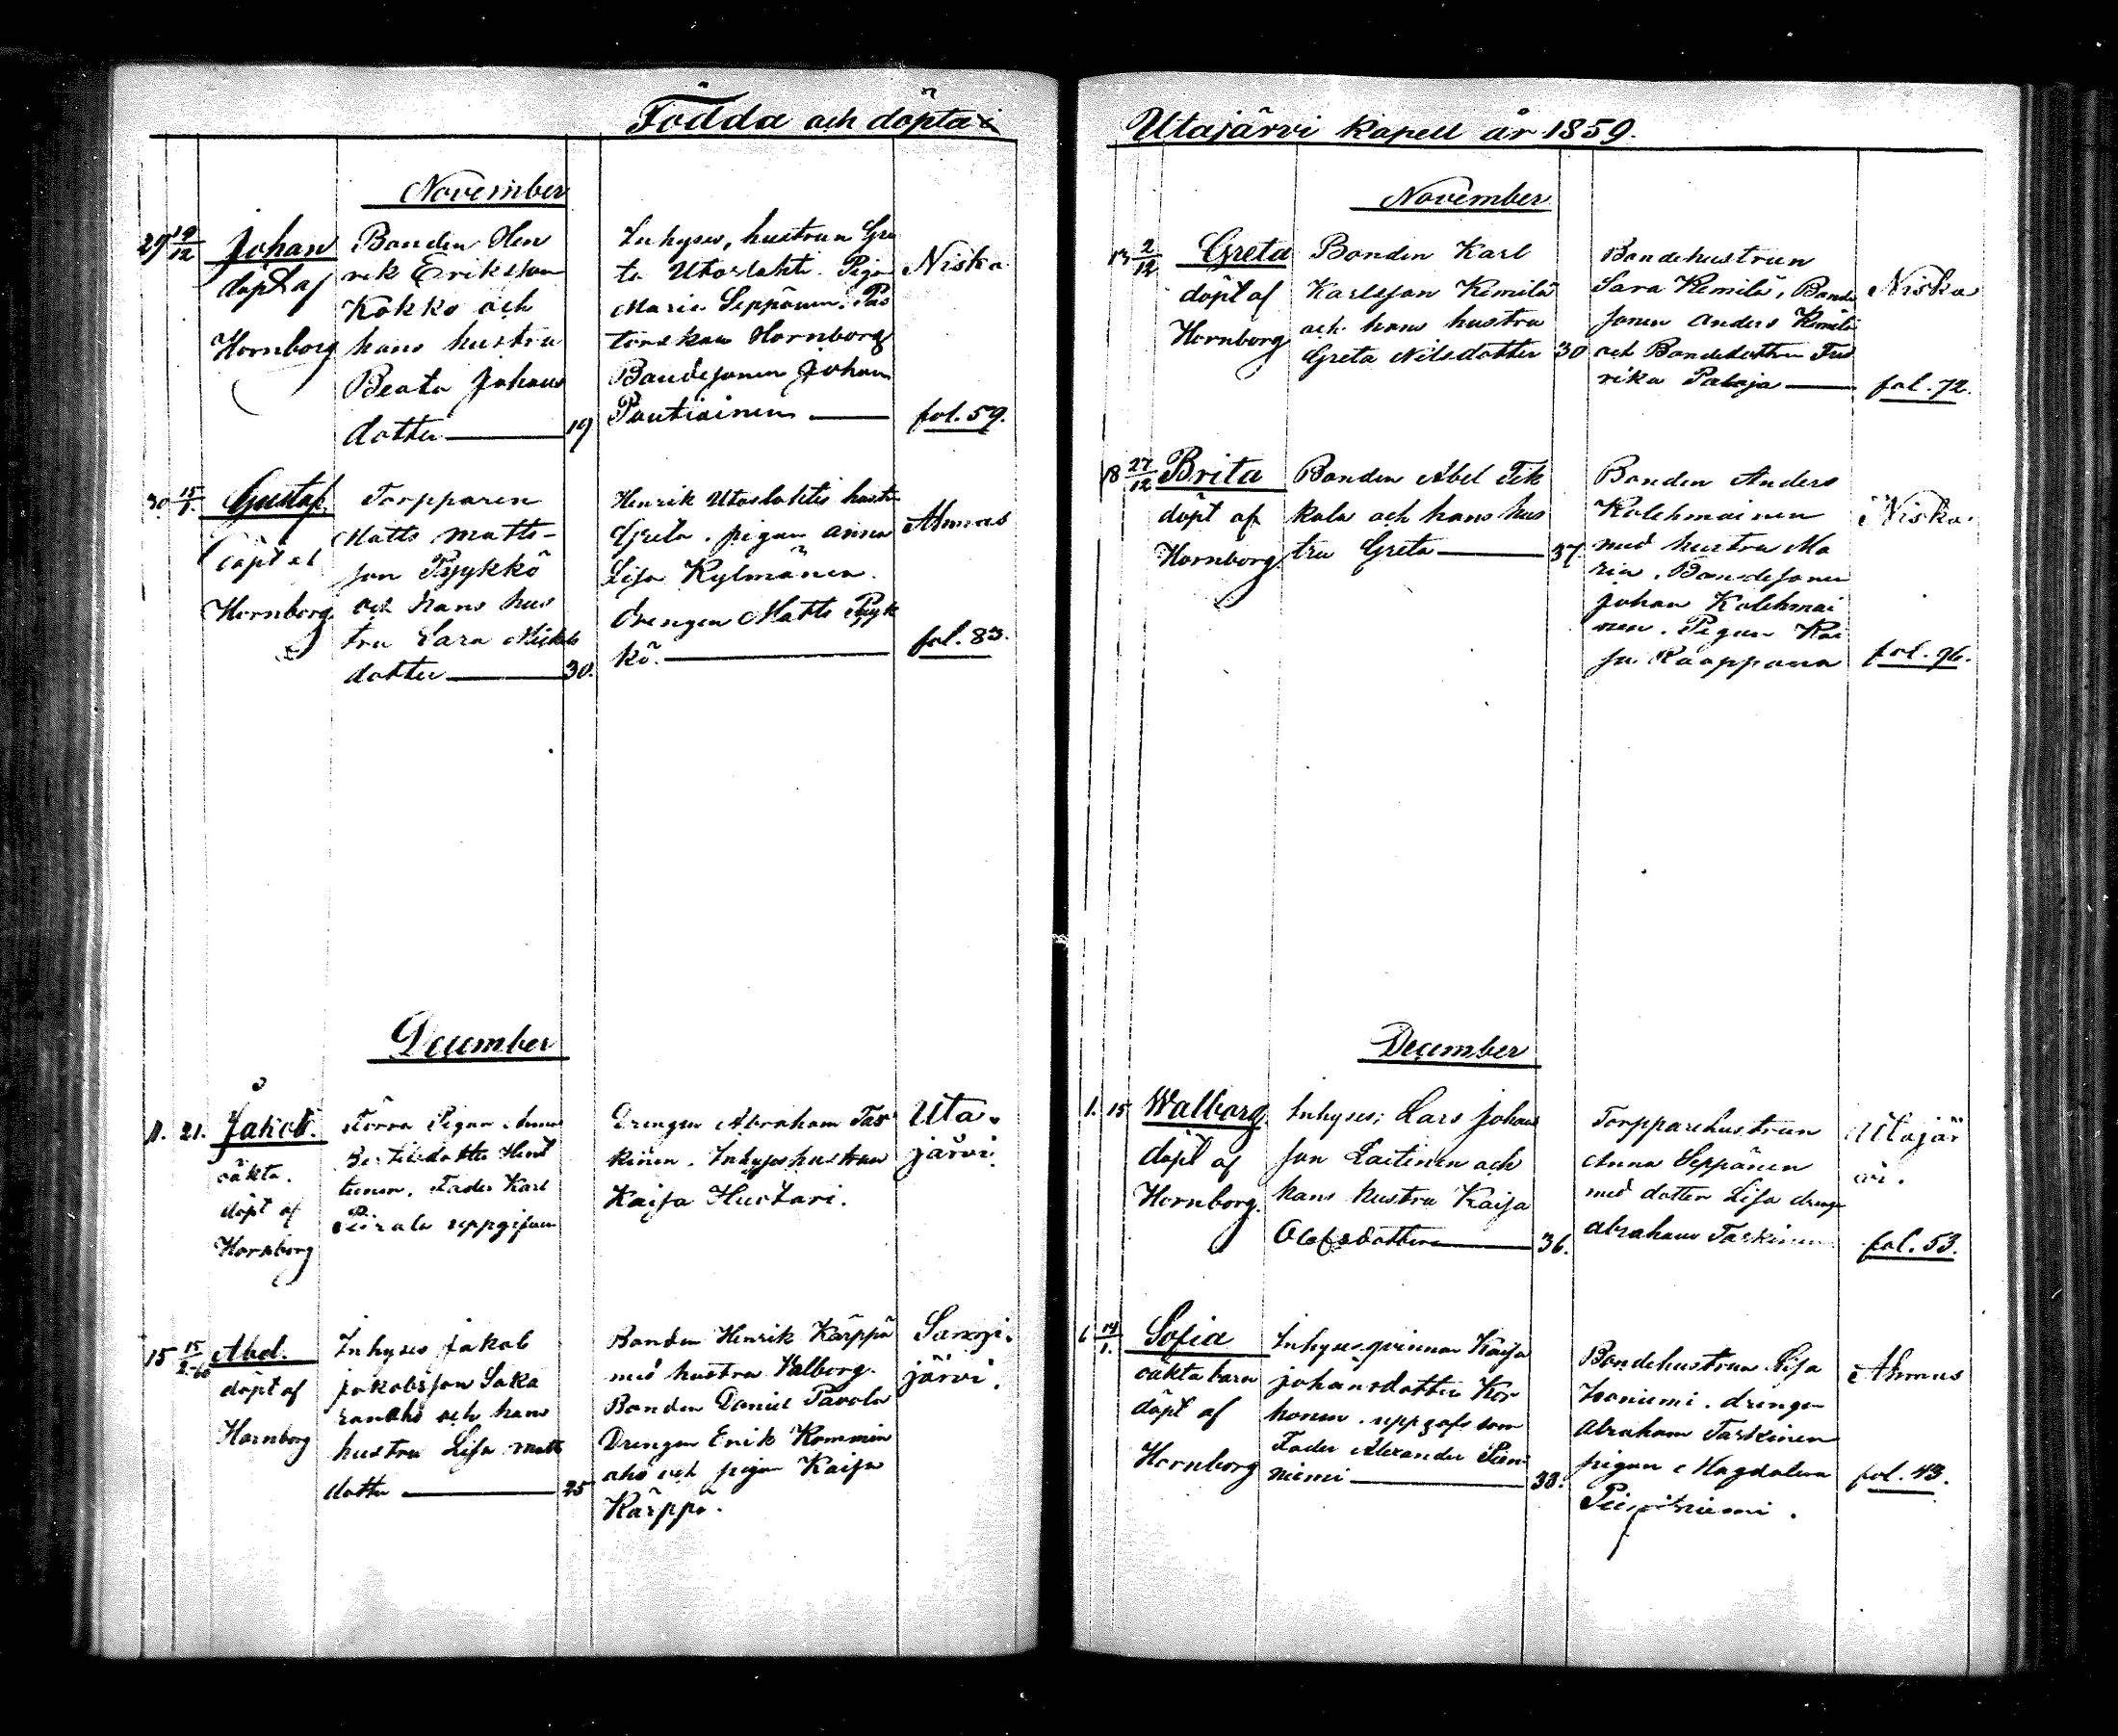 Födda och döpta i
November
29 19/12 Johan
döpt af
Hornborg
Bonden Hen
rik Eriksson
Kokko och
hans hustru
Beata Johans
dotter 19
Inhyses, hustrun Gre
ta Utoslahti. Pigan
Maria Seppänen. Pas
torskan Hornborg
Bondesonen Johan
Pontiainen
Niska
fol. 59.
30 15/1 Gustaf
döpt af
Hornborg
Torpparen
Matts Matts-
son Pyykkö
och hans hus
tru Sara Michels
dotter 30.
Henrik Utoslahtis hustru
Greta. pigan Anna
Lisa Kylmänen.
drengen Matts Pyyk
kö.
Ahmas
fol. 83.
December
11. 21. Jakob.
oäkta.
döpt af
Hornborg
Anna
Bertilsdotter
Fader Karl
uppgifven
Drengen Abraham Tas
kinen. Inhyseshustrun
Kaisa Huotari.
Uta-
järvi.
15 15/2-60 Abel.
döpt af
Hornborg
Inhyses Jakob
Jakobsson Saka
ranaho och hans
hustru Lisa Matts
dotter 25
Bonden Henrik Kärppä
med hustru Valborg.
Bonden Daniel Pavola
Drengen Erik Rommin
aho och pigan Kaisa
Kärppä.
Sangi-
järvi.
Utajärvi kapell år 1859.
November
13 2/12 Greta
döpt af
Hornborg
Bonden Karl
Karlsson Kemilä
och hans hustru
Greta Nilsdotter 30
Bondehustrun
Sara Kemilä, Bonde
sonen Anders Kemilä
och Bondedottren Fred
rika Pataja
Niska
fol. 72.
18 27/12 Brita
döpt af
Hornborg
Bonden Abel Tik
kala och hans hus
tru Greta 37.
Bonden Anders
Kolehmainen
med hustru Ma
ria, Bondesonen
Johan Kolehmai
nen. Pigan Kai
sa Kaappana
Niska.
fol. 96.
December
1. 15 Walborg.
döpt af
Hornborg.
Inhyses; Lars Johans
son Laitinen och
hans hustru Kaisa
Olofsdotter 36.
Torpparehustrun
Anna Seppänen
med dotter Lisa dreng
Abraham Taskinen
Utajär
vi.
fol. 53.
6 14/1. Sofia
oäkta barn
döpt af
Hornborg
Inhysesqvinnan Kaisa
Johansdotter Kor
honen. uppgafs som
Fader Alexander
niemi 33.
Bondehustrun Lisa
drengen
Abraham Taskinen
pigan Magdalena
Ahmas
fol. 43.